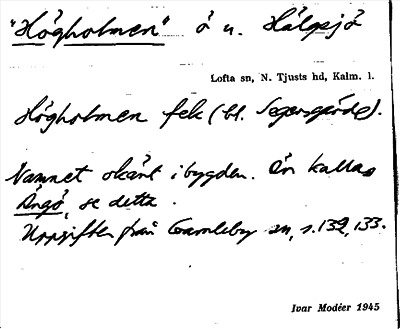 "Högholmen" ö u. Hälgsjö
Lofta sn, N. Tjusts hd, Kalm. l.
Högholmen fek (bl. Segersgärde).
Namnet okänt i bygden. Ön kallas
Ängö, se detta.
Uppgiften från Gamleby sn, s. 132, 133.
Ivar Modéer 1945